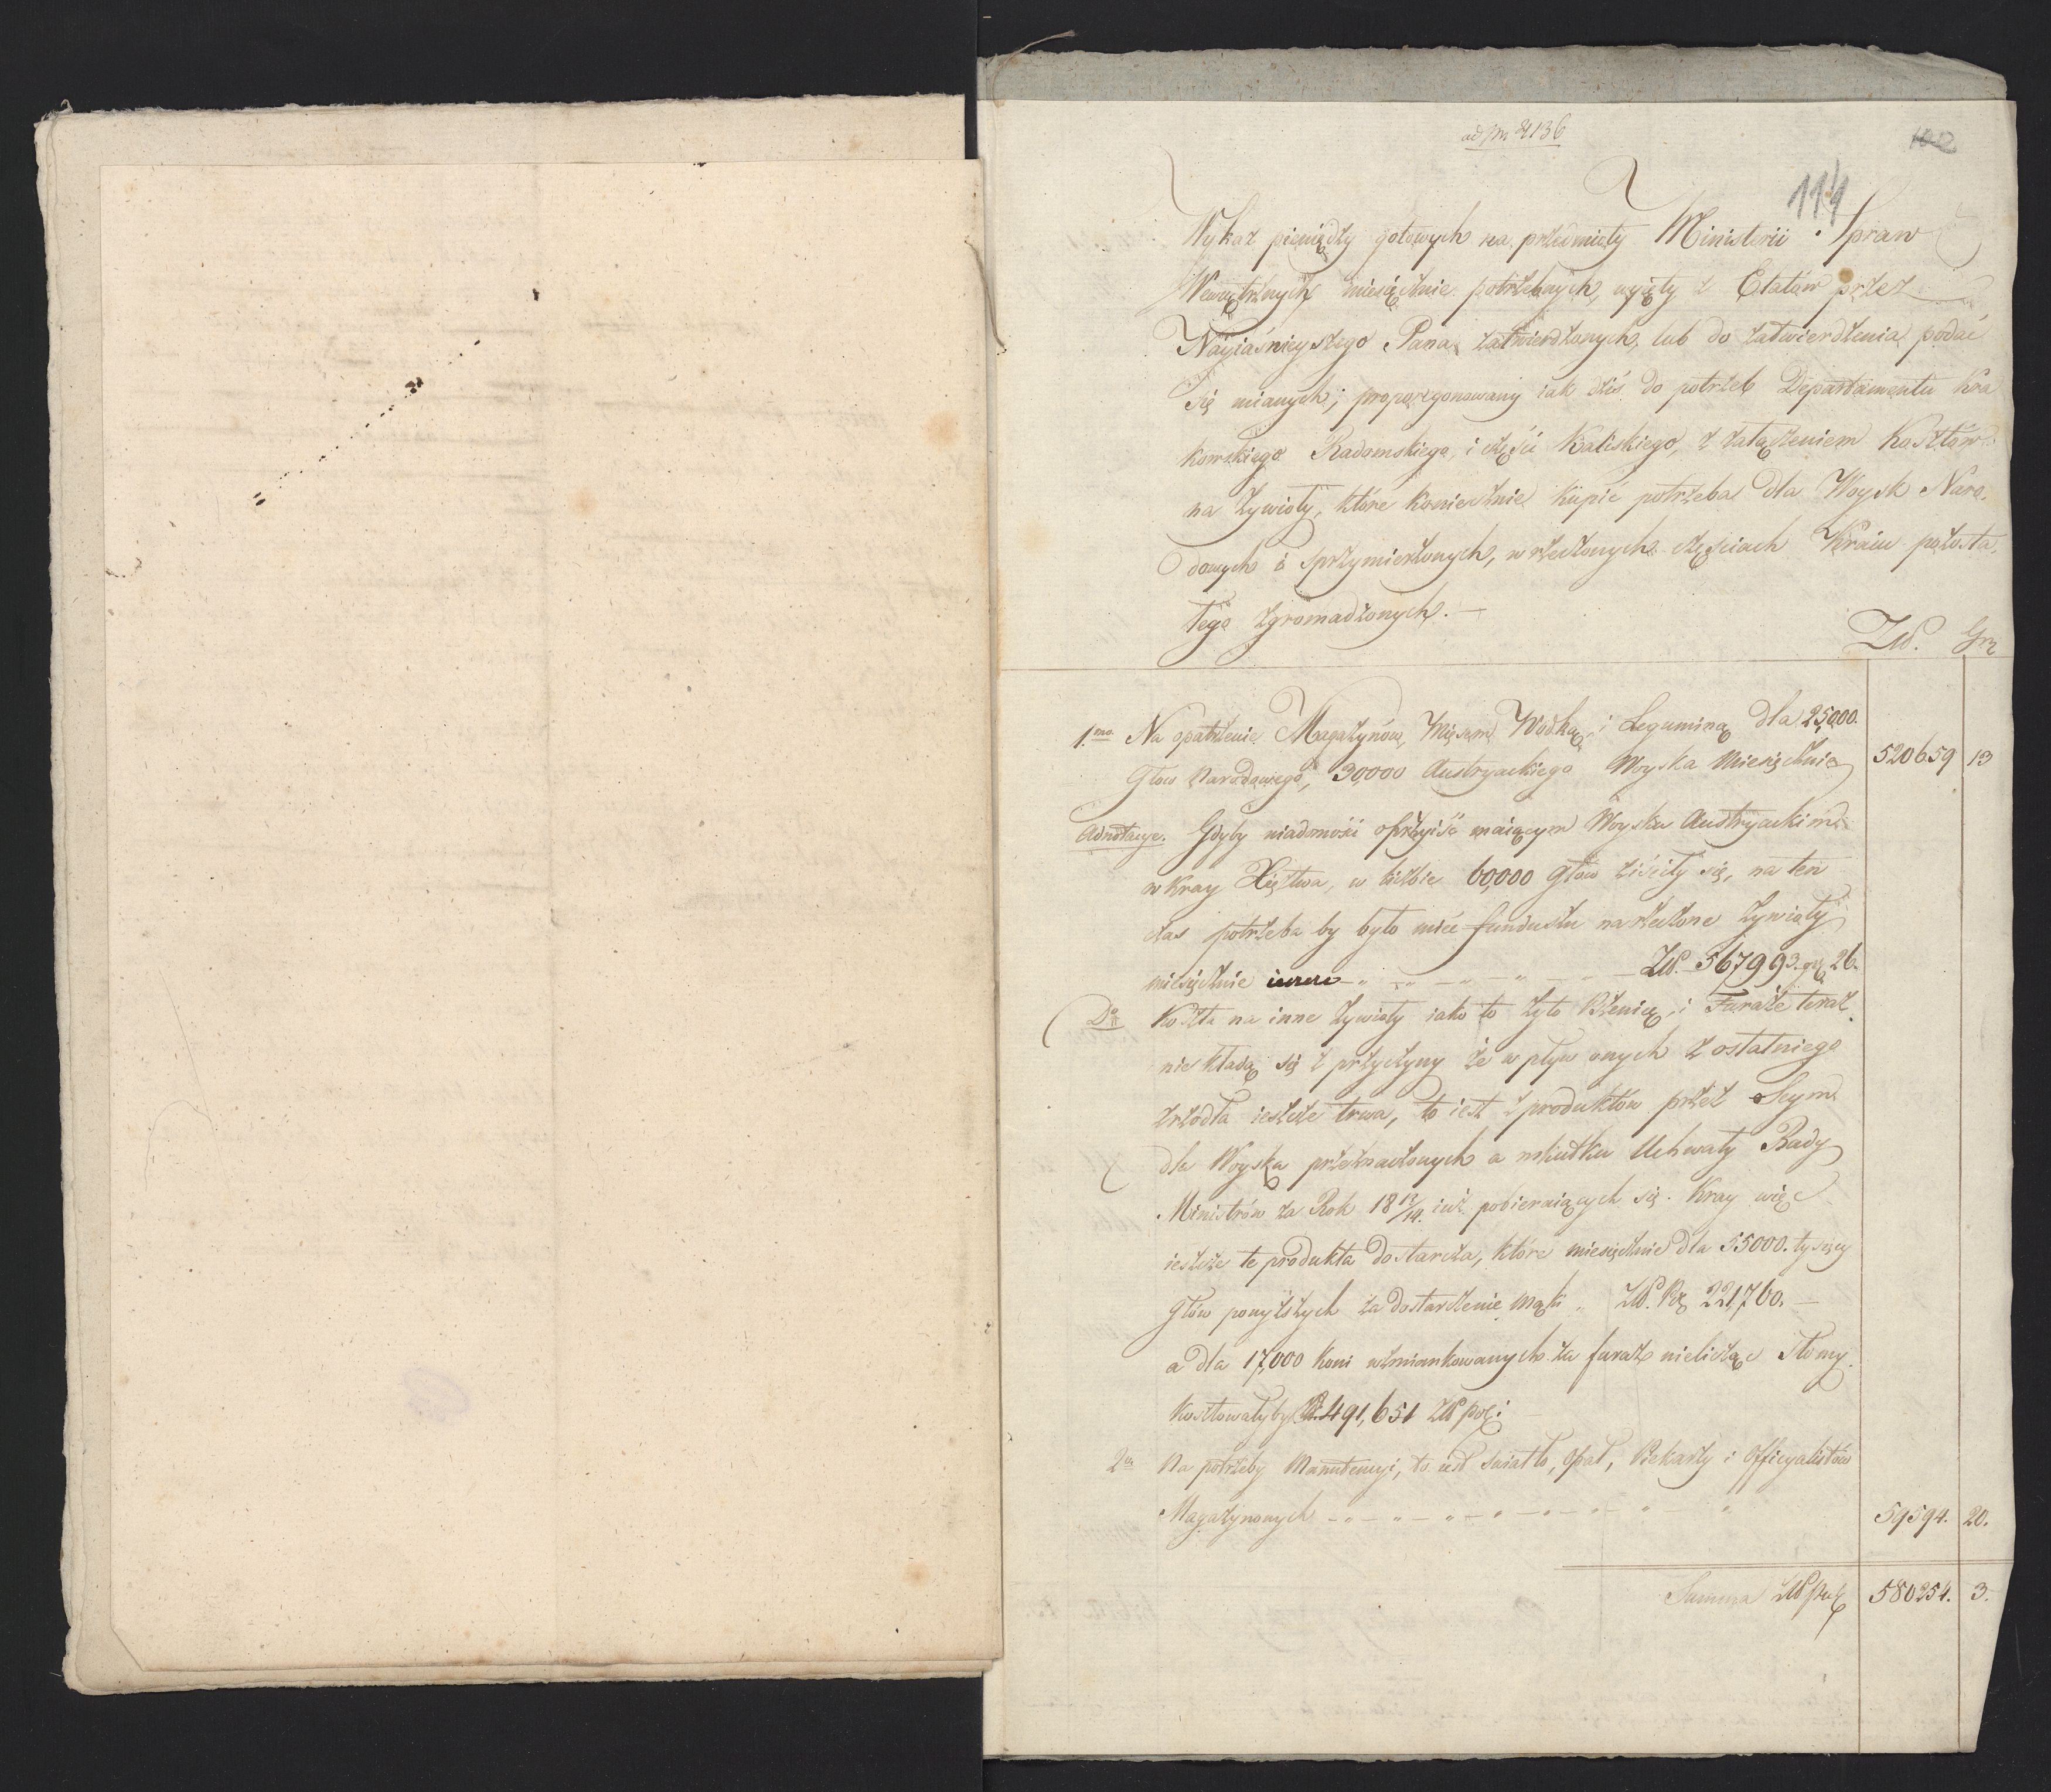 ad № 4136
102
114
Wykaz pieniędzy gotowych na przedmioty Ministerii Spraw
Wewnętrznych miesięcznie potrzebnych, wyięty z Etatów przez
Nayiaśnieyszego Pana zatwierdzonych, lub do zatwierdzenia podać
się mianych; proporcyonowany iak dziś do potrzeb Departamentu Kra
kowskiego Radomskiego, i części Kaliskiego, z załączeniem Kosztów
na żywioły, które koniecznie kupić potrzeba dla Woysk Naro-
dowych i sprzymierzonych, w rzeczonych częściach Kraiu pozosta-
łego zgromadzonych. —
Zł. Gr.
1.mo Na opatrzenie Magazynów, Mięsem, Wodką, i Leguminą dla 25,000.
Głow Narodowego, 30,000 Austryackiego Woyska Miesięcznie 520659 13
Adnotacye. Gdyby wiadomości o przyiść maiącym Woysku Austryackim
w Kray Xięstwa, w liczbie 60,000 Głow ziściły się, na ten
czas potrzeba by było mieć funduszu na rzeczone żywioły
miesięcznie ieszcze — „ — „ — „ — Zł. 567993. gr. 26.
Do Koszta na inne żywioły iako to żyto Pszenicę, i Furaże teraz
nie kładą się z przyczyny że wpływ onych z ostatniego
źrzódła ieszcze trwa, to iest z produktów przez Seym
dla Woyska przeznaczonych a w skutku Uchwały Rady
Ministrów za Rok 18 13/14. iuż pobieraiących się. Kray więc
ieszcze te produkta dostarcza, które miesięcznie dla 55000. tysięcy
Głów powyższych za dostarczenie mąki „ Zł. 221,760. —
a dla 17,000 Koni wzmiankowanych za furaż nielicząc Słomy
kosztowałyby 491,651 Zł pol:
2o Na potrzeby Manutencyi, to iest światło, opał, Piekarzy i Officyalistów
Magazynowych — „ — „ — „ — „ — „ — „ 59594. 20.
Summa Zł pol 580254. 3.